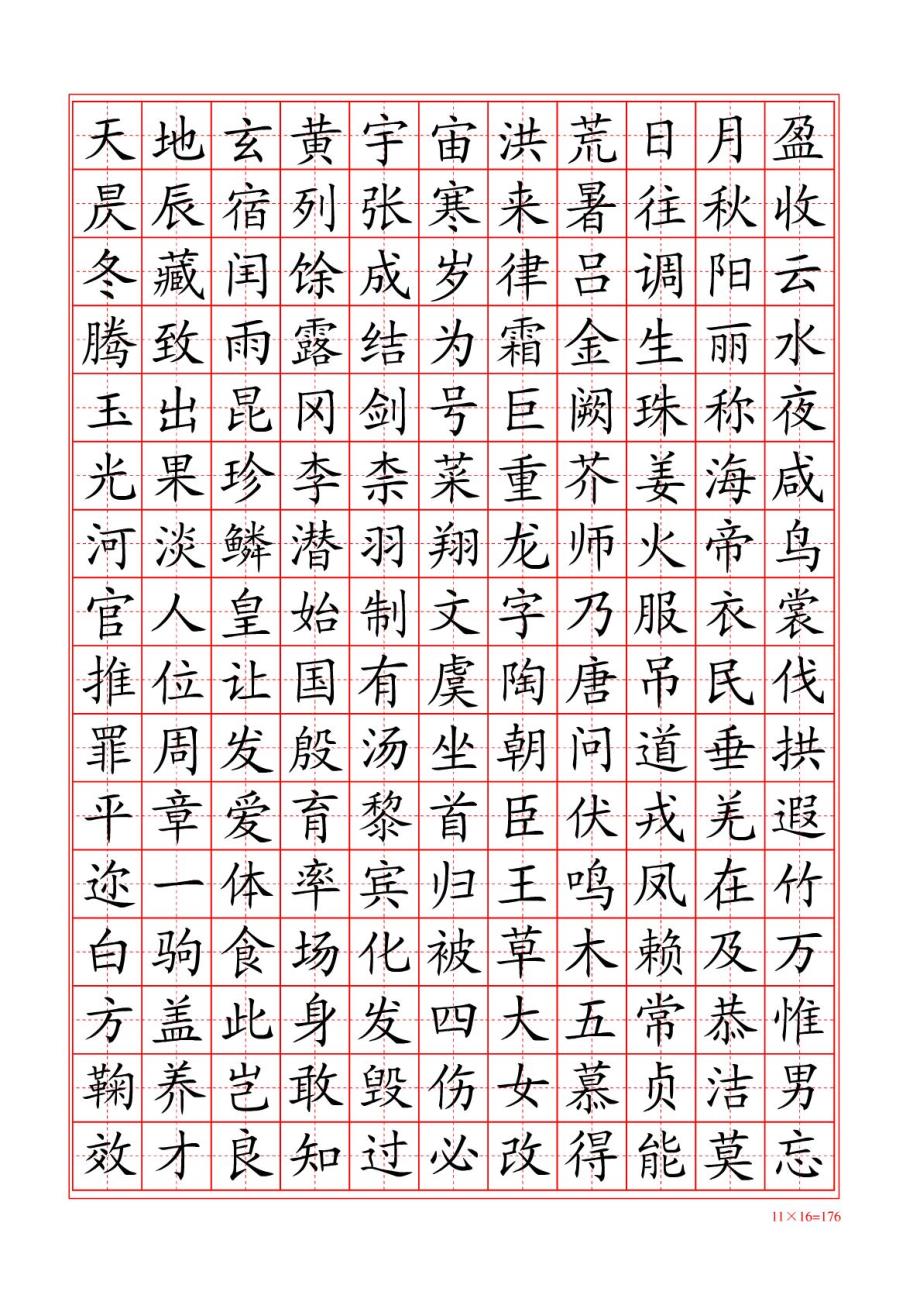 天地玄黄宇宙洪荒日月盈
昃辰宿列张寒来暑往秋收
冬藏闰馀成岁律吕调阳云
腾致雨露结为霜金生丽水
玉出昆冈剑号巨阙珠称夜
光果珍李柰菜重芥姜海咸
河淡鳞潜羽翔龙师火帝鸟
官人皇始制文字乃服衣裳
推位让国有虞陶唐吊民伐
罪周发殷汤坐朝问道垂拱
平章爱育黎首臣伏戎羌遐
迩一体率宾归王鸣凤在竹
白驹食场化被草木赖及万
方盖此身发四大五常恭惟
鞠养岂敢毁伤女慕贞洁男
效才良知过必改得能莫忘
11×16=176